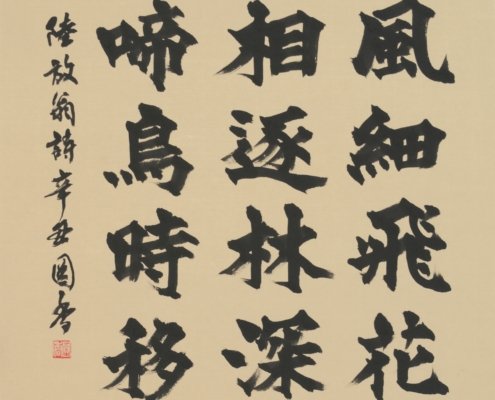 風細飛花
相逐林深
啼鳥時移
陸放翁詩辛丑國香